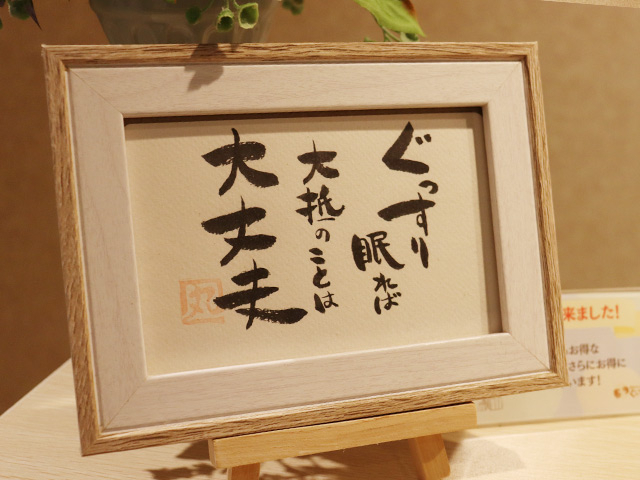 ぐっすり
眠れば
大抵のことは
大丈夫
来ました!
お得な
さらにお得に
います!